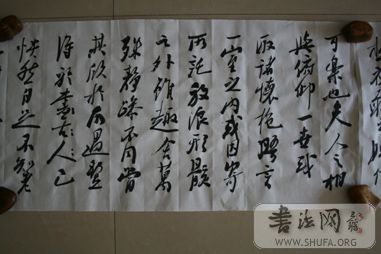 可樂也夫人之相
與俯仰一世或
取諸懷抱晤言
一室之內或因寄
所託放浪形骸
之外雖趣舍萬
殊靜躁不同當
其欣於所遇暫
得於己
快然自足不知老
書法网
WWW.SHUFA.ORG